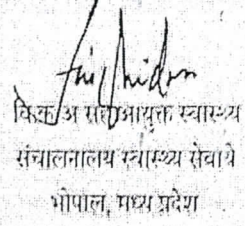 कि.क.अ सह आयुक्त स्वास्थ्य
संचालनालय स्वास्थ्य सेवाये
भोपाल, मध्य प्रदेश